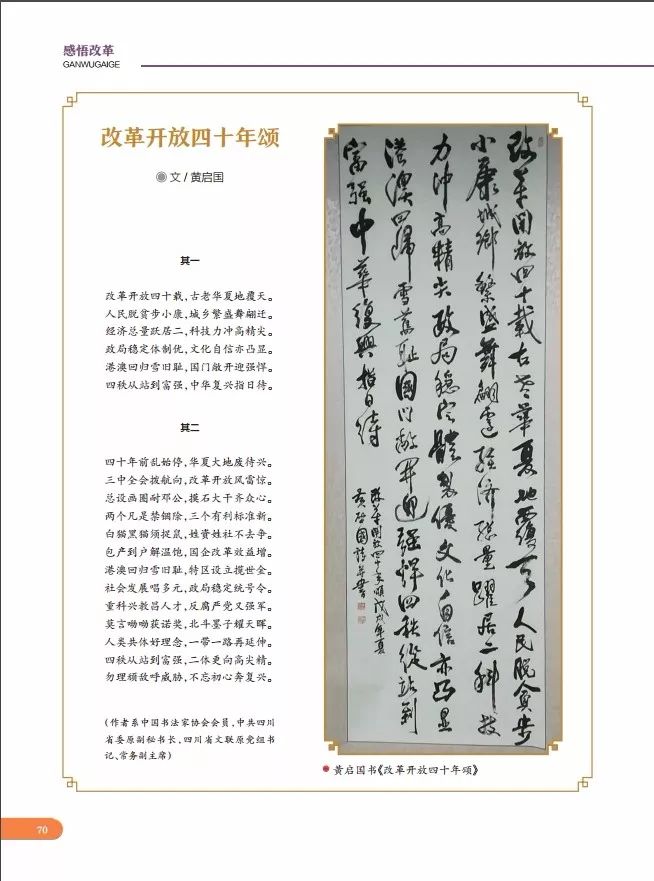 感悟改革
GANWUGAIGE
改革开放四十年颂
文 / 黄启国
其一
改革开放四十载，古老华夏地覆天。
人民脱贫步小康，城乡繁盛舞翩迁。
经济总量跃居二，科技力冲高精尖。
政局稳定体制优，文化自信亦凸显。
港澳回归雪旧耻，国门敞开迎强悍。
四秩从站到富强，中华复兴指日待。
其二
四十年前乱始停，华夏大地废待兴。
三中全会拨航向，改革开放风雷惊。
总设画圈耐邓公，摸石大干齐众心。
两个凡是禁锢除，三个有利标准新。
白猫黑猫须捉鼠，姓资姓社不去争。
包产到户解温饱，国企改革效益增。
港澳回归雪旧耻，特区设立揽世金。
社会发展唱多元，政局稳定统号令。
重科兴教昌人才，反腐严党又强军。
莫言呦呦获诺奖，北斗墨子耀天晖。
人类共体好理念，一带一路再延伸。
四秩从站到富强，二体更向高尖精。
勿理颉敌呼威胁，不忘初心奔复兴。
（作者系中国书法家协会会员，中共四川
省委原副秘书长，四川省文联原党组书
记、常务副主席）
改革開放四十載古老華夏地覆天人民脱貧步
小康城鄉繁盛舞翩迁經濟總量躍居二科技
力冲高精尖政局穩定體制優文化自信亦凸显
港澳回归雪舊耻國门敞開迎强悍四秩從站到
富强中華復興指日待
改革開放四十年頌戊戌年夏
黄启國詩并書
黄启国书《改革开放四十年颂》
70